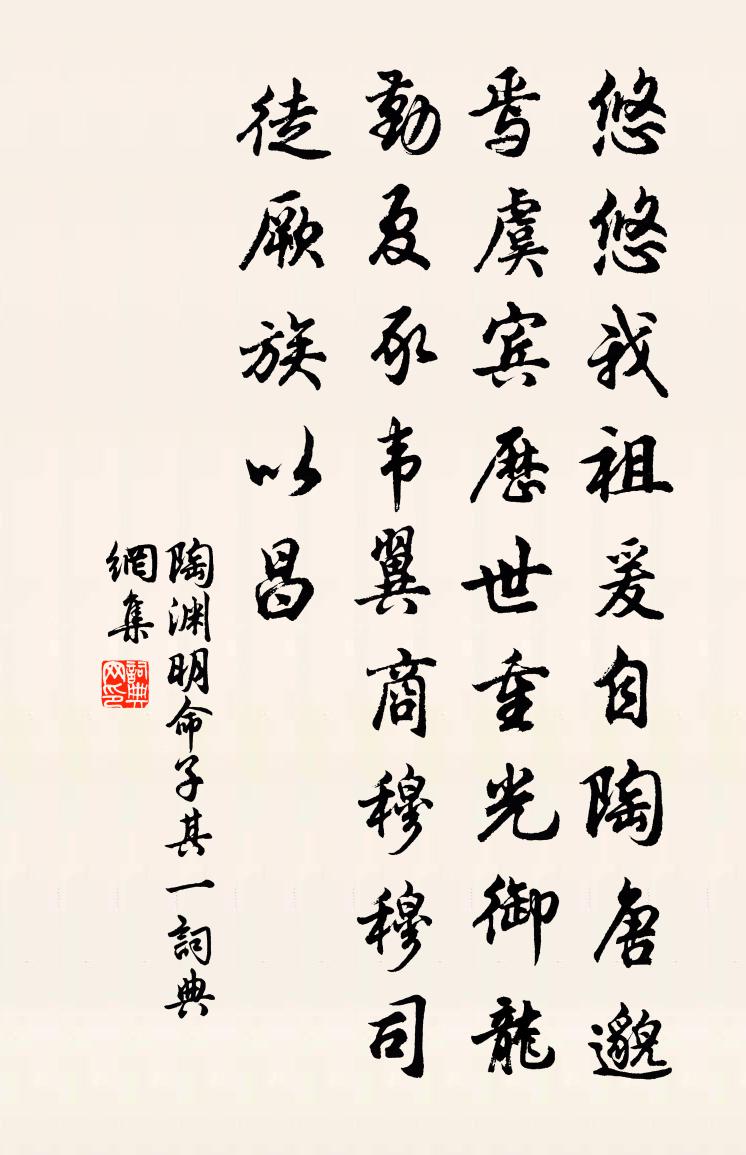 悠悠我祖爰自陶唐邈
焉虞宾歷世重光御龍
勤夏豕韦翼商穆穆司
徒厥族以昌
陶渊明命子其一詞典
網集
詞典
网印